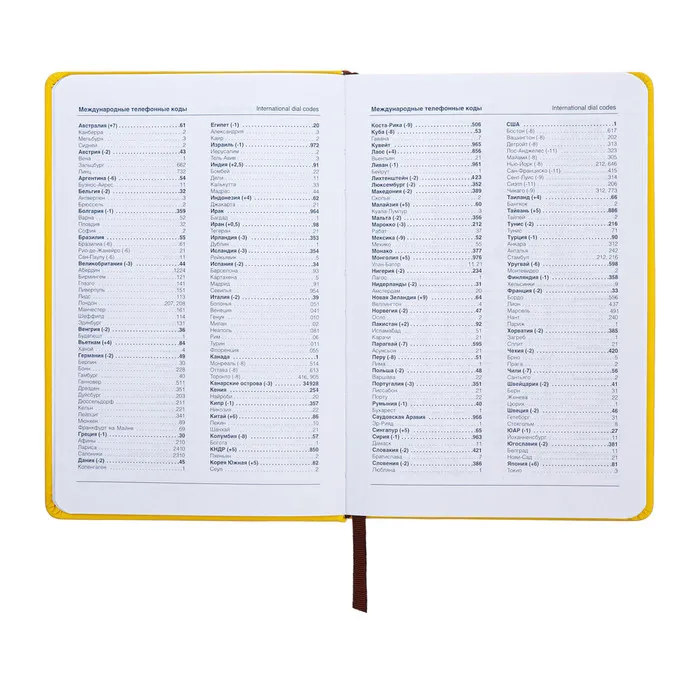 Международные телефонные коды International dial codes
Австралия (+7) 61
Канберра 2
Мельбурн 3
Сидней 2
Австрия (-2) 43
Вена 1
Зальцбург 662
Линц 732
Аргентина (-6) 54
Буэнос-Айрес 11
Бельгия (-2) 32
Антверпен 3
Брюссель 2
Болгария (-1) 359
Варна 52
Пловдив 32
София 2
Бразилия 55
Бразилиа (-6) 61
Рио-де-Жанейро (-6) 21
Сан-Паулу (-6) 11
Великобритания (-3) 44
Абердин 1224
Бирмингем 121
Глазго 141
Ливерпуль 151
Лидс 113
Лондон 207, 208
Манчестер 161
Шеффилд 114
Эдинбург 131
Венгрия (-2) 36
Будапешт 1
Вьетнам (+4) 84
Ханой 4
Германия (-2) 49
Берлин 30
Бонн 228
Гамбург 40
Ганновер 511
Дрезден 351
Дуйсбург 203
Дюссельдорф 211
Кельн 221
Лейпциг 341
Мюнхен 89
Франкфурт на Майне 69
Греция (-1) 30
Афины 210
Лариса 2410
Салоники 2310
Дания (-2) 45
Копенгаген 1
Египет (-1) 20
Александрия 3
Каир 2
Израиль (-1) 972
Иерусалим 2
Тель-Авив 3
Индия (+2,5) 91
Бомбей 22
Дели 11
Калькутта 33
Мадрас 44
Индонезия (+4) 62
Джакарта 21
Ирак 964
Багдад 1
Иран (+0,5) 98
Тегеран 21
Ирландия (-3) 353
Дублин 1
Исландия (-3) 354
Рейкьявик 5
Испания (-2) 34
Барселона 93
Картахена 5
Мадрид 91
Севилья 954
Италия (-2) 39
Болонья 051
Венеция 041
Генуя 010
Милан 02
Неаполь 081
Рим 06
Турин 011
Флоренция 055
Канада 1
Монреаль (-8) 514
Оттава (-8) 613
Торонто (-8) 416, 905
Канарские острова (-3) 34928
Кения 254
Найроби 20
Кипр (-1) 357
Никозия 22
Китай (+6) 86
Пекин 10
Шанхай 21
Колумбия (-8) 57
Богота 1
КНДР (+5) 850
Пхеньян 2
Корея Южная (+5) 82
Сеул 2
Международные телефонные коды International dial codes
Коста-Рика (-9) 506
Куба (-8) 53
Гавана 7
Кувейт 965
Лаос (+4) 856
Вьентьян 21
Ливан (-1) 961
Бейрут 1
Лихтенштейн (-2) 423
Люксембург (-2) 352
Македония (-2) 389
Скопье 2
Малайзия (+5) 60
Куала-Лумпур 3
Мальта (-2) 356
Марокко (-3) 212
Рабат 37
Мексика (-9) 52
Мехико 55
Монако 377
Монголия (+5) 976
Улан-Батор 11 21
Нигерия (-2) 234
Лагос 1
Нидерланды (-2) 31
Амстердам 20
Новая Зеландия (+9) 64
Веллингтон 4
Норвегия (-2) 47
Осло 2
Пакистан (+2) 92
Исламабад 51
Карачи 21
Парагвай (-7) 595
Асунсьон 21
Перу (-8) 51
Лима 1
Польша (-2) 48
Варшава 22
Португалия (-3) 351
Лиссабон 21
Порту 22
Румыния (-1) 40
Бухарест 1
Саудовская Аравия 966
Эр-Рияд 1
Сингапур (+5) 65
Сирия (-1) 963
Дамаск 11
Словакия (-2) 421
Братислава 7
Словения (-2) 386
Любляна 1
США 1
Бостон (-8) 617
Вашингтон (-8) 202
Детройт (-8) 313
Лос-Анджелес (-11) 323
Майами (-8) 305
Нью-Йорк (-8) 212, 646
Сан-Франциско (-11) 415
Сент-Луис (-9) 314
Сиэтл (-11) 206
Чикаго (-9) 312, 773
Таиланд (+4) 66
Бангкок 2
Тайвань (+5) 886
Тайбэй 2
Тунис (-2) 216
Тунис 71
Турция (-1) 90
Анкара 312
Анталья 242
Стамбул 212, 216
Уругвай (-6) 598
Монтевидео 2
Финляндия (-1) 358
Хельсинки 9
Франция (-2) 33
Бордо 556
Лион 437
Марсель 491
Нант 240
Париж 1
Хорватия (-2) 385
Загреб 1
Сплит 21
Чехия (-2) 420
Брно 5
Прага 2
Чили (-7) 56
Сантьяго 2
Швейцария (-2) 41
Берн 31
Женева 22
Цюрих 1
Швеция (-2) 46
Гетеборг 31
Стокгольм 8
ЮАР (-1) 27
Йоханнесбург 11
Югославия (-2) 381
Белград 11
Нови-Сад 21
Япония (+6) 81
Токио 3